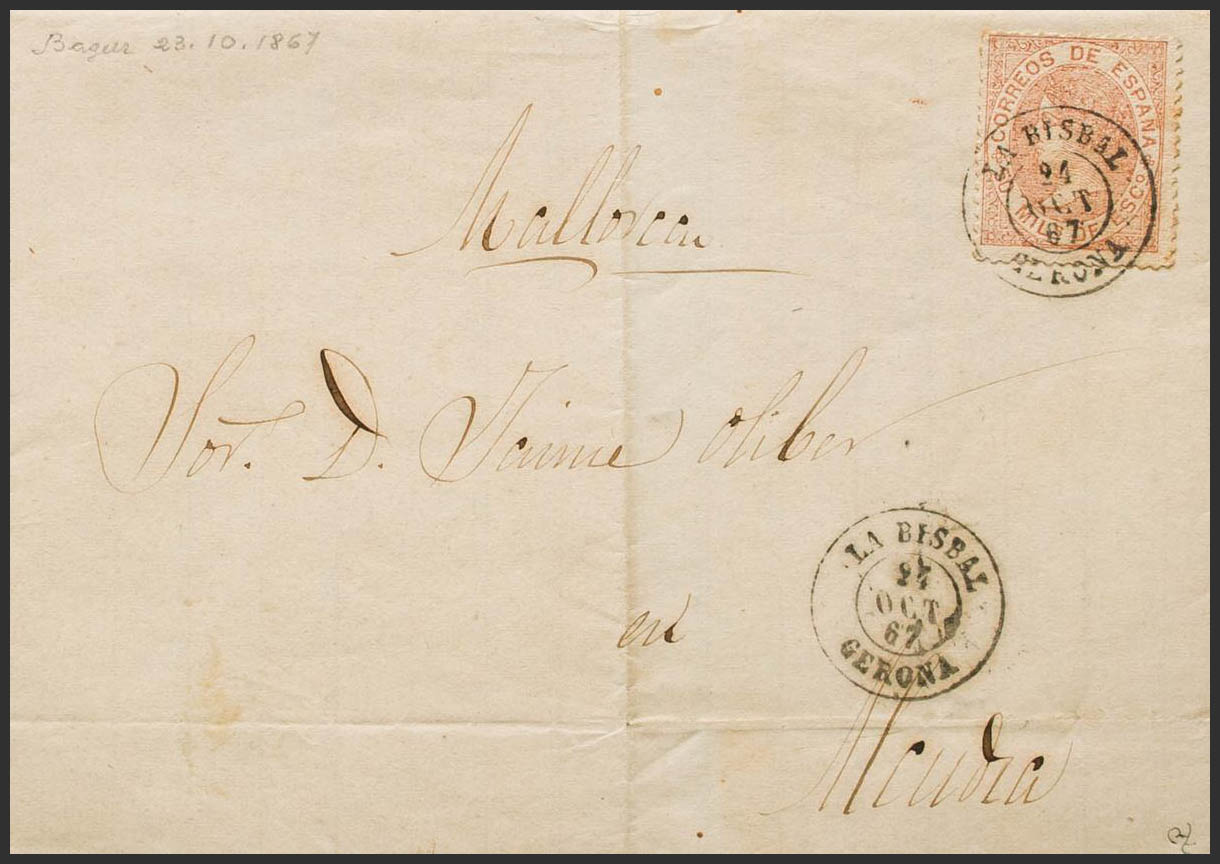 Bagur 23.10.1867
CORREOS DE ESPAÑA
MIL DE ESCº
LA BISBAL
24
OCT
67
GERONA
Mallorca
Sor. D. Jaime Oliber
LA BISBAL
24
OCT
67
GERONA
en
Alcudia